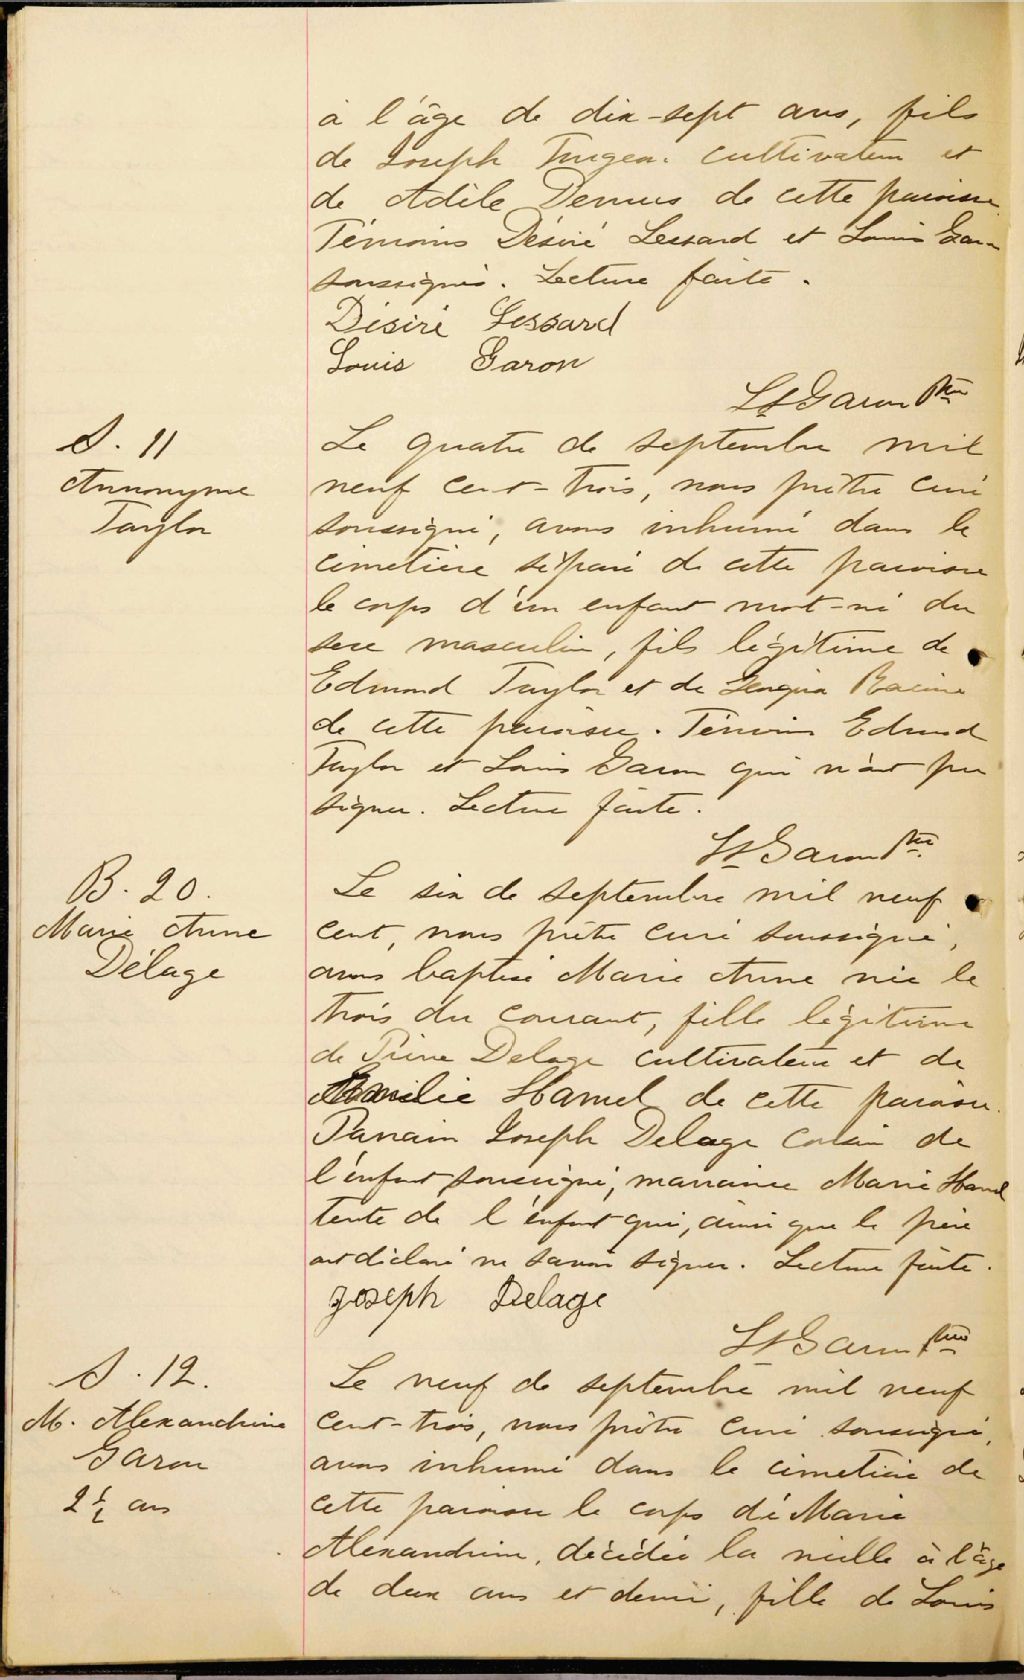 à l'âge de dix-sept ans, fils
de Joseph Turgeon cultivateur et
de Adèle Demers de cette paroisse.
Témoins Désiré Lessard et Louis Garon
soussignés. Lecture faite.
Désiré Lessard
Louis Garon
Ls Garon Ptre
S. 11
Annonyme
Taylor
Le quatre de septembre mil
neuf cent-trois, nous prêtre curé
soussigné, avons inhumé dans le
cimetière séparé de cette paroisse
le corps d'un enfant mort-né du
sexe masculin, fils légitime de
Edmond Taylor et de Georgina Racine
de cette paroisse. Témoins Edmond
Taylor et Louis Garon qui n'ont pu
signer. Lecture faite.
Ls Garon Ptre
B. 20.
Marie Anne
Délage
Le six de septembre mil neuf
cent, nous prêtre curé soussigné,
avons baptisé Marie Anne née le
trois du courant, fille légitime
de Pierre Delage cultivateur et de
Hamel de cette paroisse.
Parrain Joseph Delage cousin de
l'enfant soussigné, marraine Marie Hamel
tante de l'enfant qui, ainsi que le père
ont déclaré ne savoir signer. Lecture faite.
Joseph Delage
Ls Garon Ptre
S. 12.
M. Alexandrine
Garon
2 1/2 ans
Le neuf de septembre mil neuf
cent-trois, nous prêtre curé soussigné,
avons inhumé dans le cimetière de
cette paroisse le corps de Marie
Alexandrine, décédée la veille à l'âge
de deux ans et demi, fille de Louis